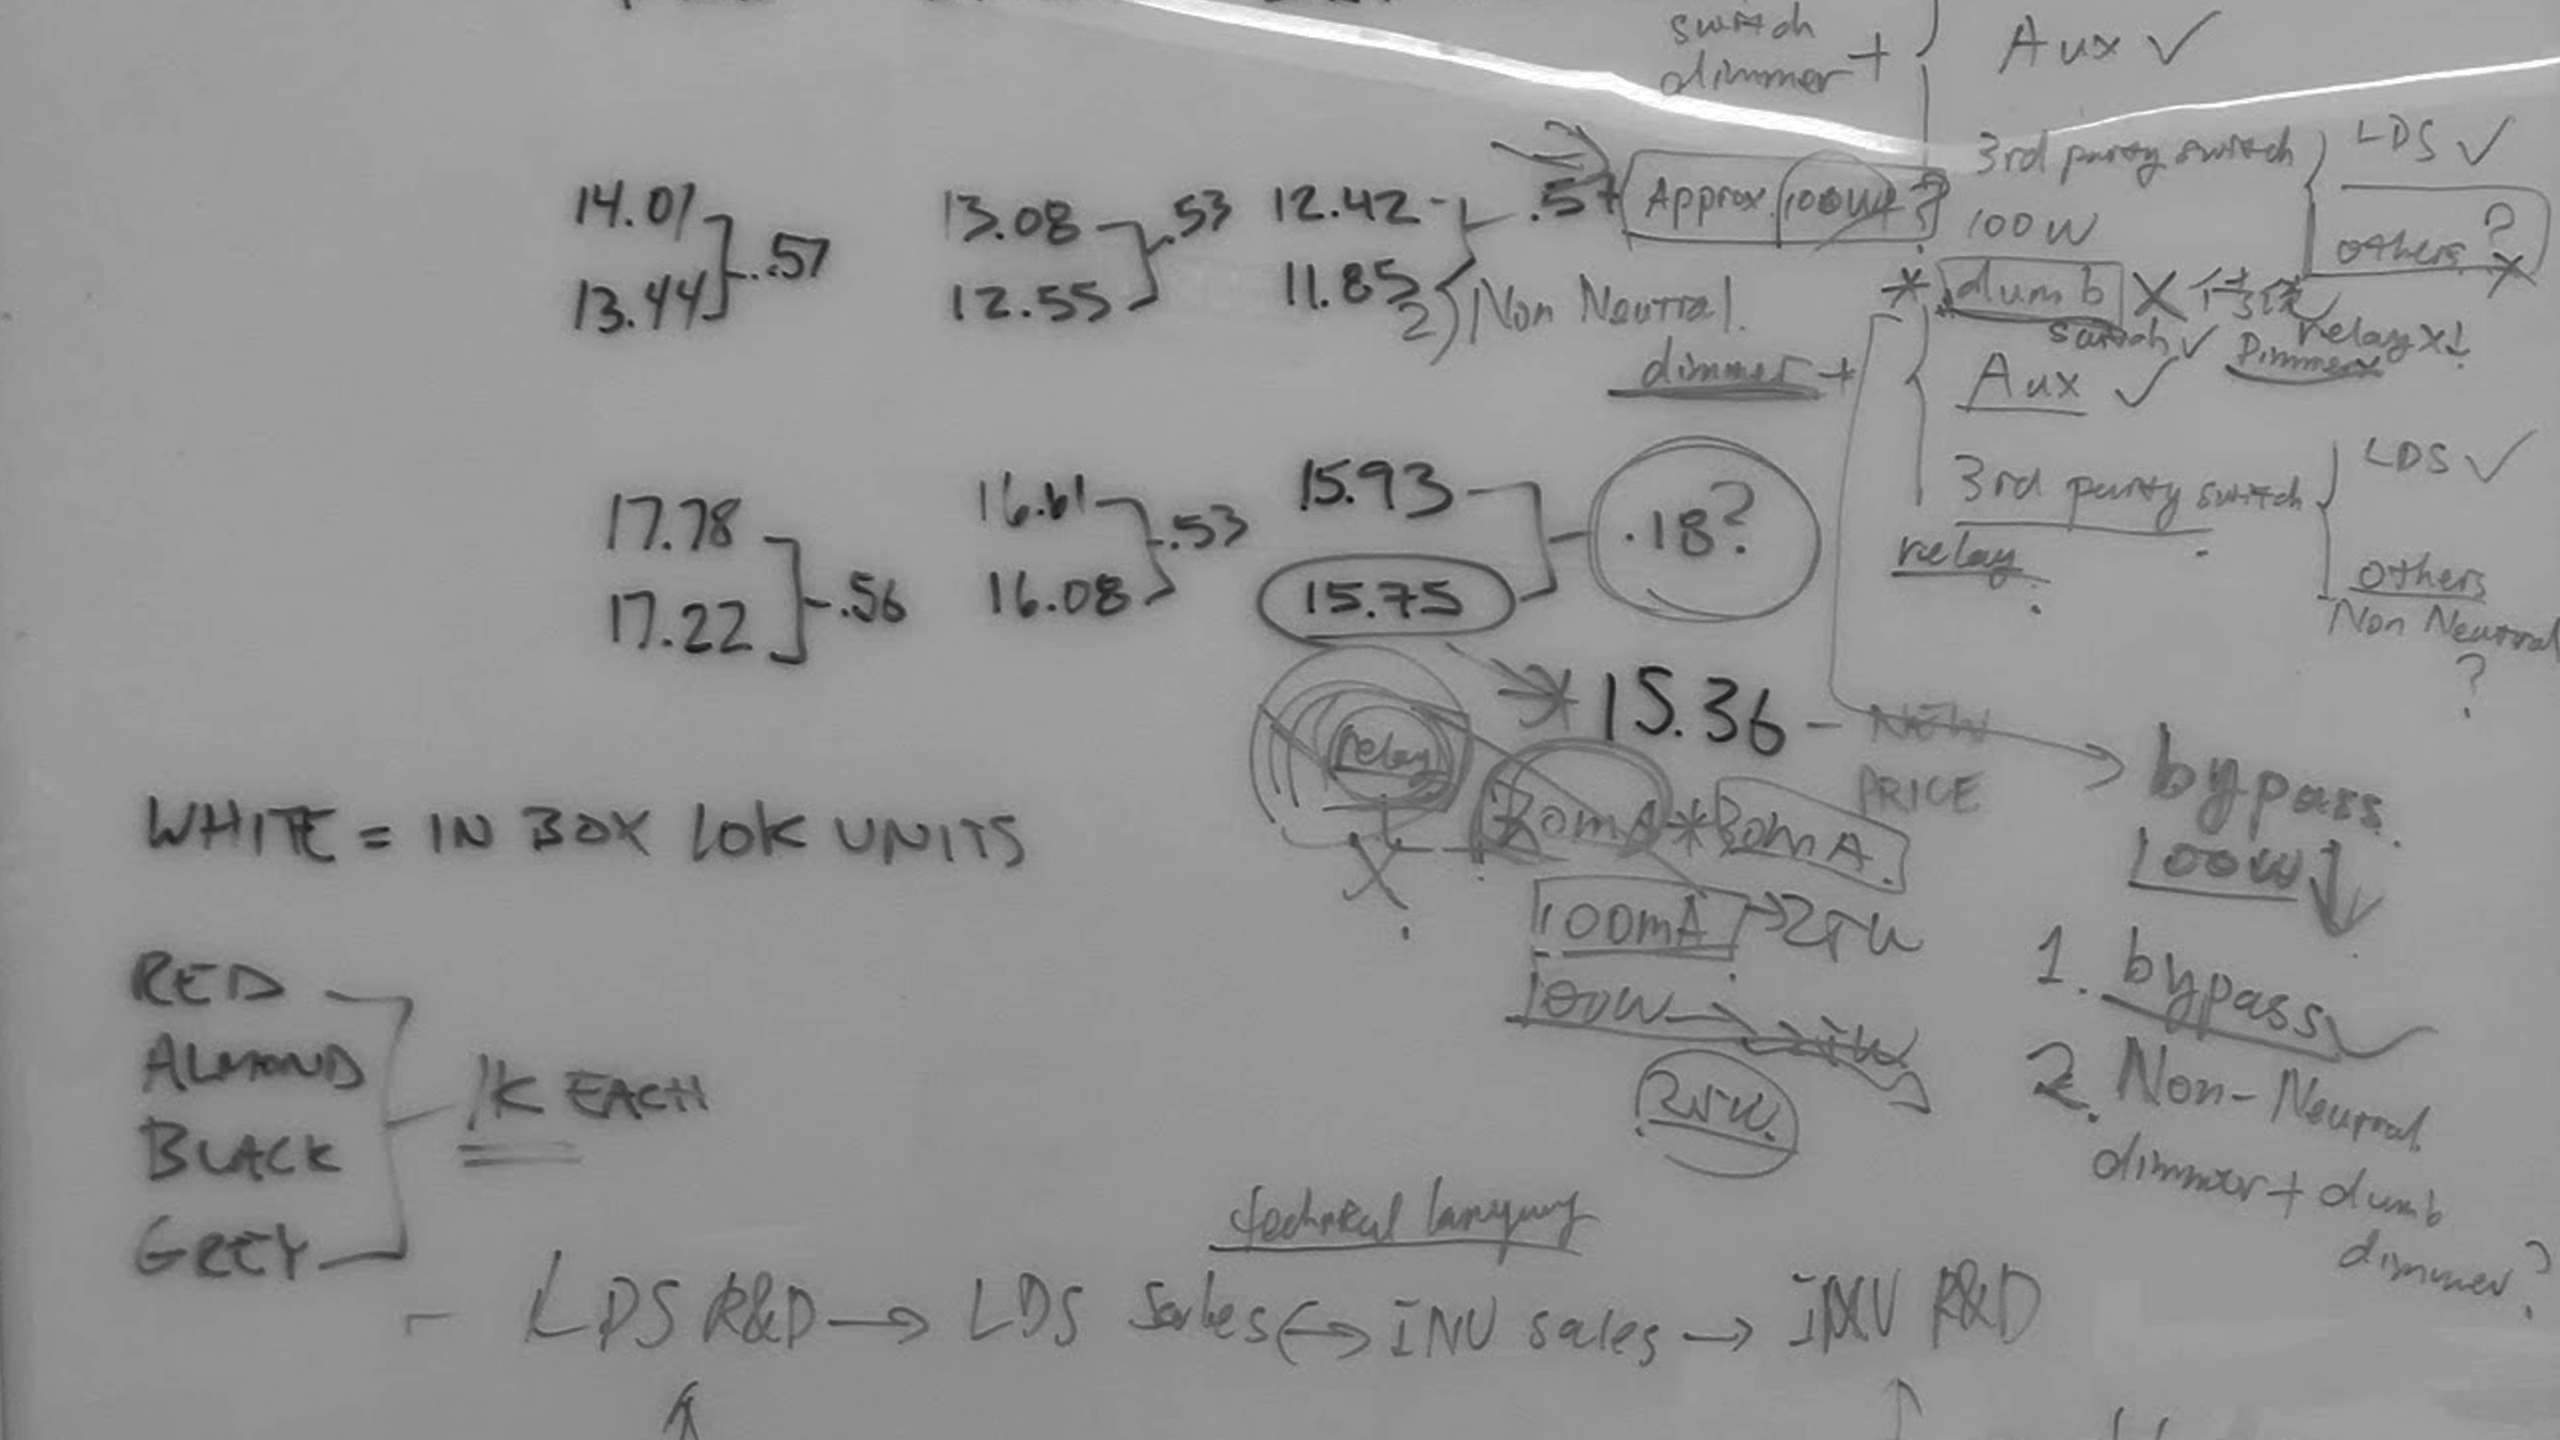 switch
dimmer +
Aux ✓
3rd party switch
LDS ✓
100W
others ?
14.01
13.44
.57
13.08
12.55
.53
12.42
11.85
.57
Approx. 100W ?
2) Non Neutral.
dimmer +
* dumb X
switch ✓
Dimmer
relay x
Aux ✓
3rd party switch
LDS ✓
others
Non Neutral
?
relay
17.78
17.22
.56
16.61
16.08
.53
15.93
15.75
.18?
15.36 - NEW
PRICE
relay
X
30mA.
100mA → 25W
100W →
25W.
bypass.
100W ↓
1. bypass ✓
2. Non-Neutral
dimmer + dumb
dimmer?
WHITE = IN BOX 10K UNITS
RED
ALMOND
BLACK
GREY
1K EACH
technical
- LDS R&D → LDS Sales ↔ INV sales → INV R&D